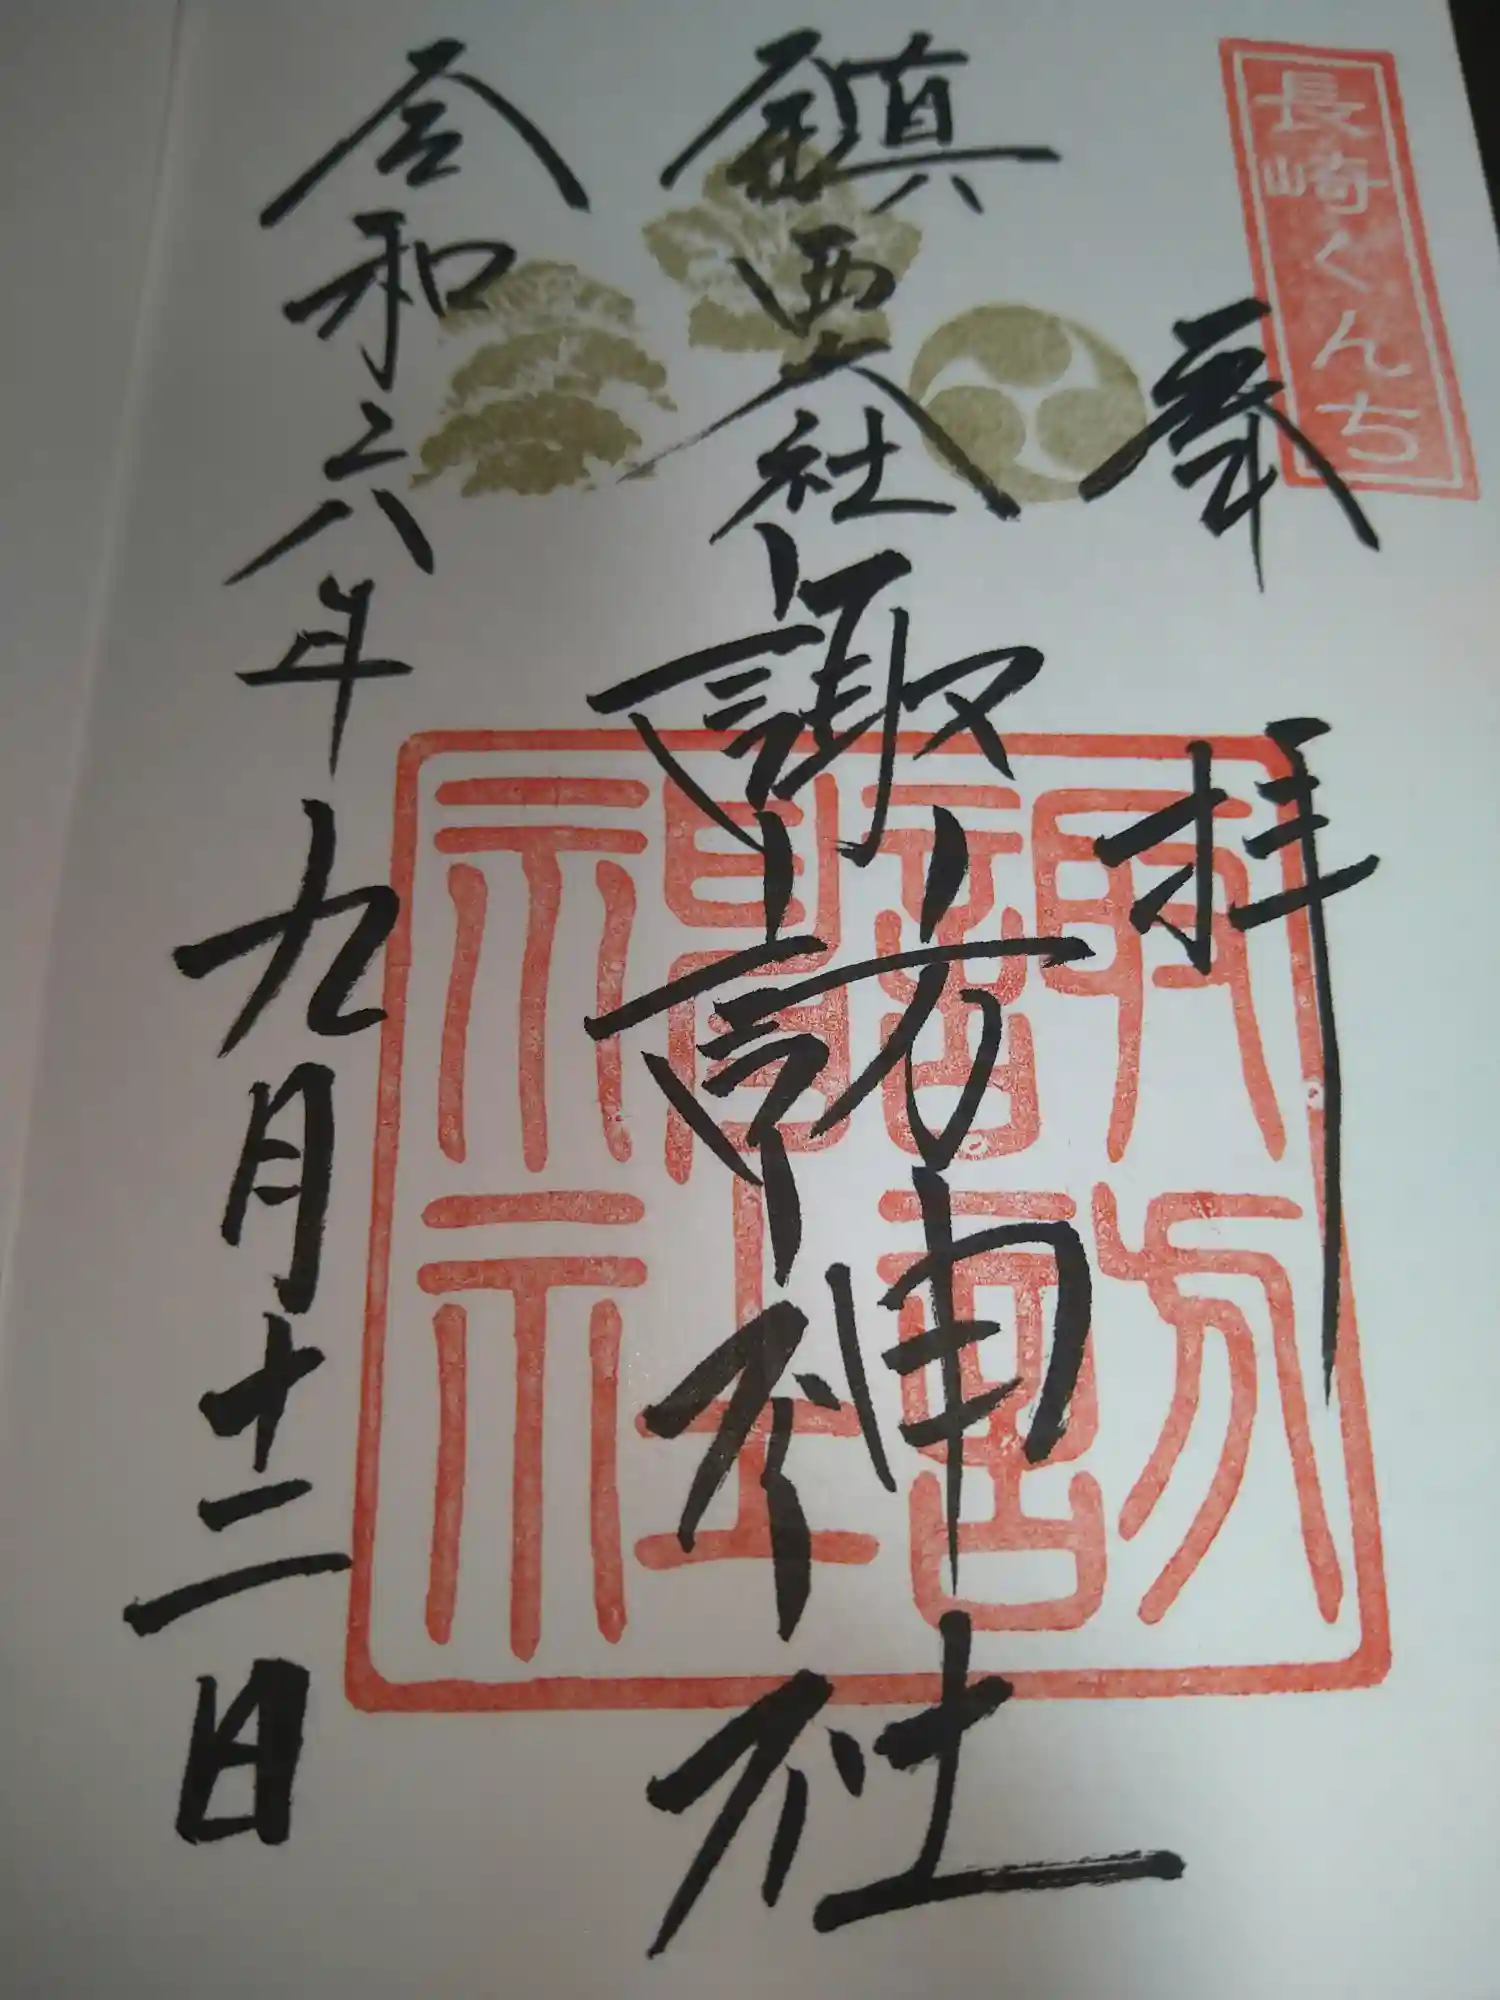 長崎くんち
奉拝
鎮西大社
諏方神社
令和六年九月十二日